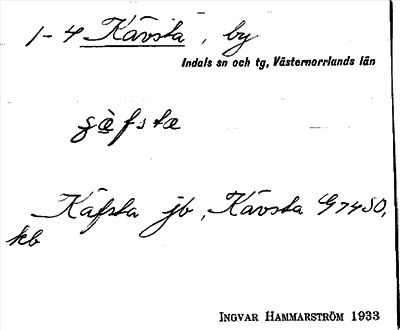 1-4 Kävsta, by
Indals sn och tg, Västernorrlands län
Käfsta jb, Kävsta G 74 SO,
kb
INGVAR HAMMARSTRÖM 1933